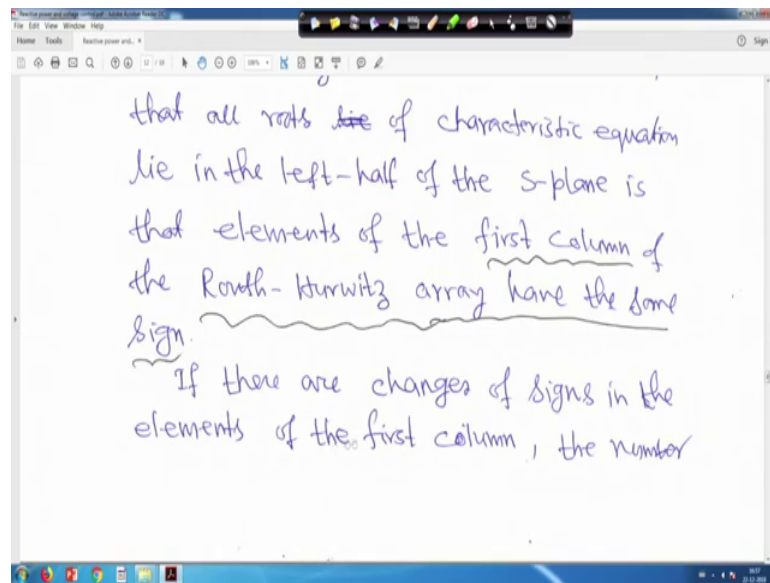 Reactive power and voltage control.pdf - Adobe Acrobat Reader DC
File Edit View Window Help
Home Tools Reactive power and... × Sign
that all roots lie of characteristic equation
lie in the left-half of the s-plane is
that elements of the first column of
the Routh-Hurwitz array have the same
sign.
If there are changes of signs in the
elements of the first column, the number